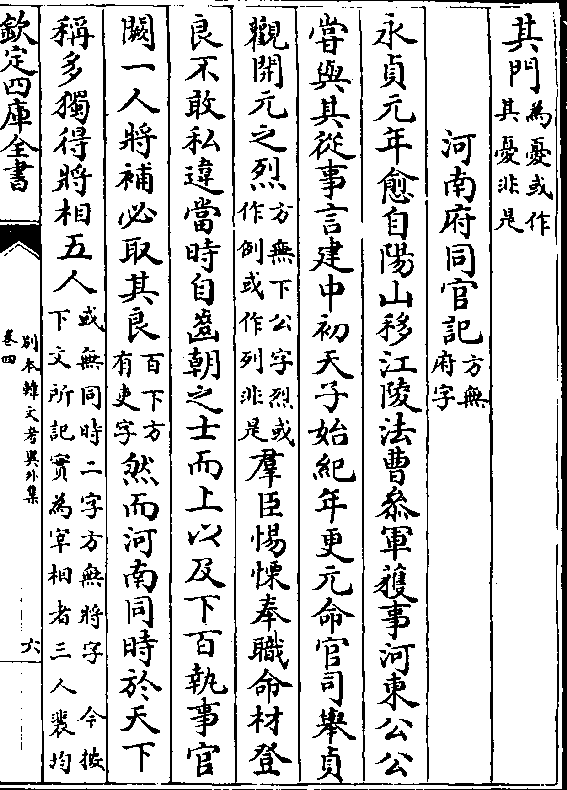 其門為憂或作其憂非是
河南府同官記方無府字
永貞元年愈自陽山移江陵法曹叅軍獲事河東公公
嘗與其從事言建中初天子始紀年更元命官司舉貞
觀開元之烈方無下公字烈或作例或作列非是羣臣惕慄奉職命材登
良不敢私違當時自齒朝之士而上以及下百執事官
闕一人將補必取其良百下方有吏字然而河南同時於天下
稱多獨得將相五人或無同時二字方無將字 今按下文所記實為宰相者三人裴均
欽定四庫全書
別本韓文考異外集
卷四
六